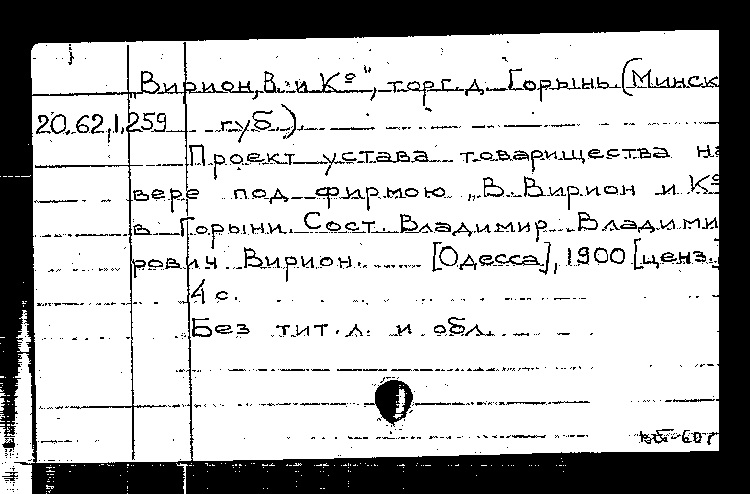 „Вирион, В. и К°", торг. д. Горынь. (Минск
20.62.1.259 губ.).
Проект устава товарищества на
вере под фирмою „В. Вирион и К°
в Горыни. Сост. Владимир Владими
рович Вирион. [Одесса], 1900 [ценз.]
4 с.
Без тит. л. и обл.